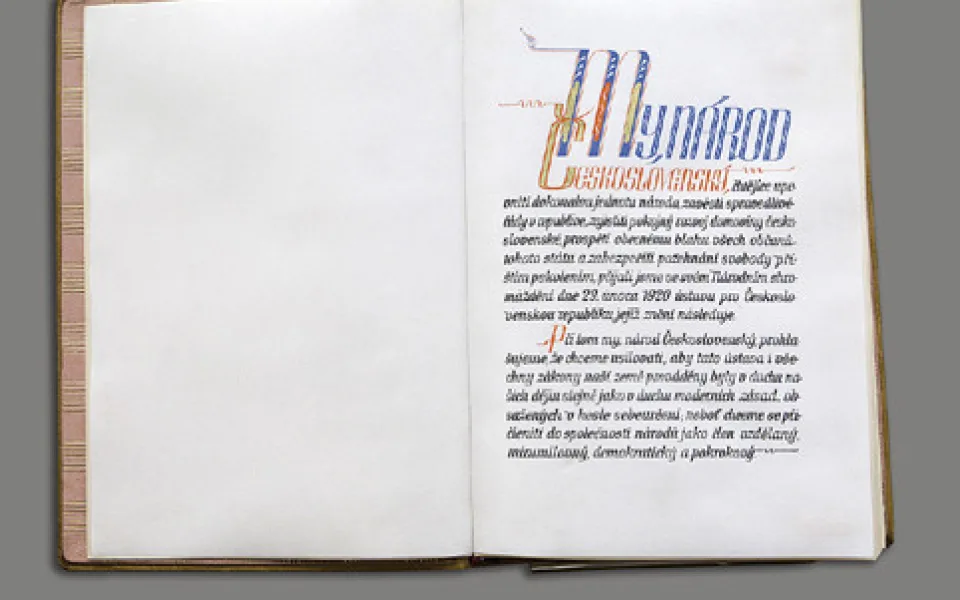 My, NÁROD
ČESKOSLOVENSKÝ, chtějíce upe-
vniti dokonalou jednotu národa, zavésti spravedlivé
řády v republice, zajistiti pokojný rozvoj domoviny česko-
slovenské, prospěti obecnému blahu všech občanů
tohoto státu a zabezpečiti požehnání svobody pří-
štím pokolením, přijali jsme ve svém Národním shro-
máždění dne 29. února 1920 ústavu pro Českoslo-
venskou republiku, jejíž znění následuje.
Při tom my, národ Československý, prohla-
šujeme, že chceme usilovati, aby tato ústava i vše-
chny zákony naší země prováděny byly v duchu na-
šich dějin stejně jako v duchu moderních zásad, ob-
sažených v hesle sebeurčení; neboť chceme se při-
členiti do společnosti národů jako člen vzdělaný,
mírumilovný, demokratický a pokrokový.